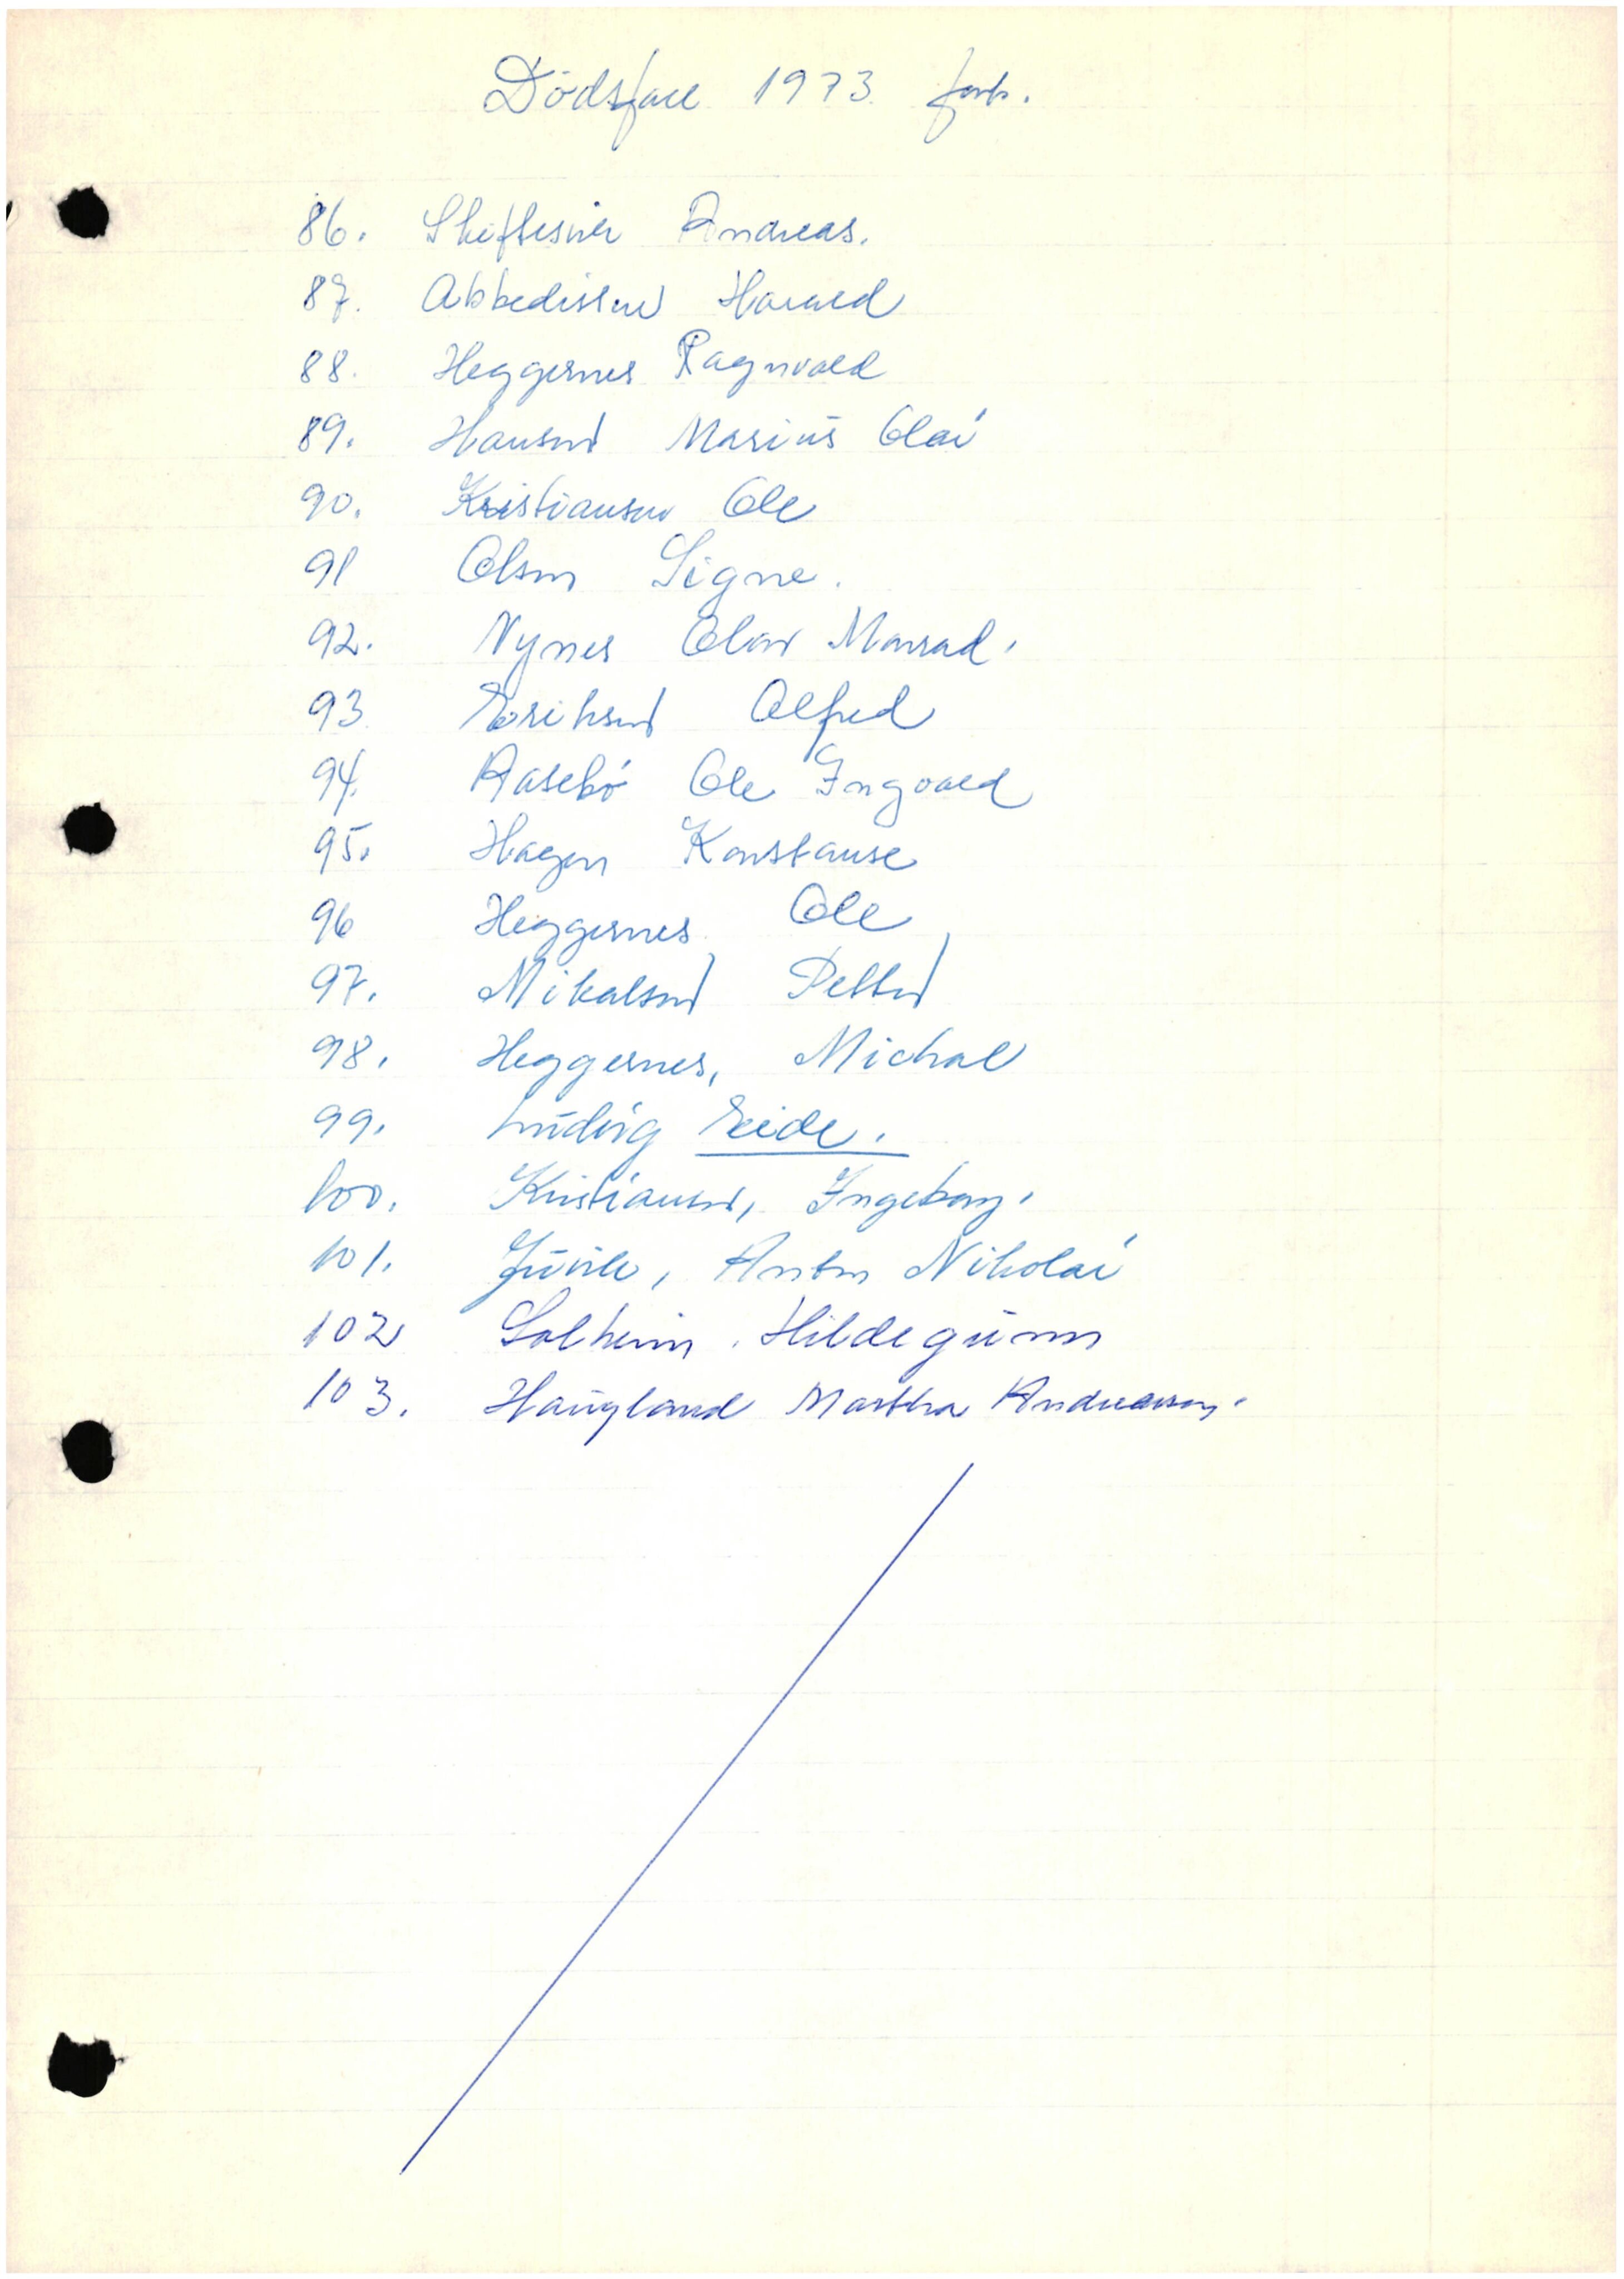 Dödsfall 1973 forts.
86. Skiftesvik Andreas.
87. Abbedissen Harald
88. Heggernes Ragnvald
89. Hansen Marius Olai
90. Kristiansen Ole
91 Olsen Signe.
92. Nynes Olav Monrad.
93 Eriksen Alfred
94. Aasebö Ole Ingvald
95. Hagen Konstanse
96 Heggernes Ole
97. Mikalsen Petter
98. Heggernes, Michal
99. Ludvig Eide.
100. Kristiansen, Ingeborg.
101. Juvik, Anton Nikolai
102 Solheim. Hildegunn
103. Haugland Martha Andreasen.